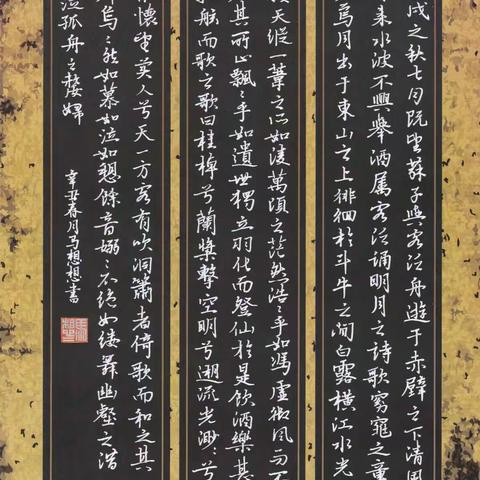 戌之秋七月既望蘇子與客泛舟遊于赤壁之下清風
来水波不興舉酒属客泛誦明月之詩歌窈窕之章
焉月出于東山之上徘徊於斗牛之间白露橫江水光
天縱一葦之所如凌萬頃之茫然浩〻乎如馮虛御風而不
其所止飄〻乎如遺世獨立羽化而登仙於是飲酒樂甚
舷而歌之歌曰桂棹兮蘭槳擊空明兮遡流光渺〻兮
懷望美人兮天一方客有吹洞簫者倚歌而和之其
嗚〻然如慕如泣如愬餘音嫋〻不絕如縷舞幽壑之潛
泣孤舟之嫠婦
辛丑春月马想想書